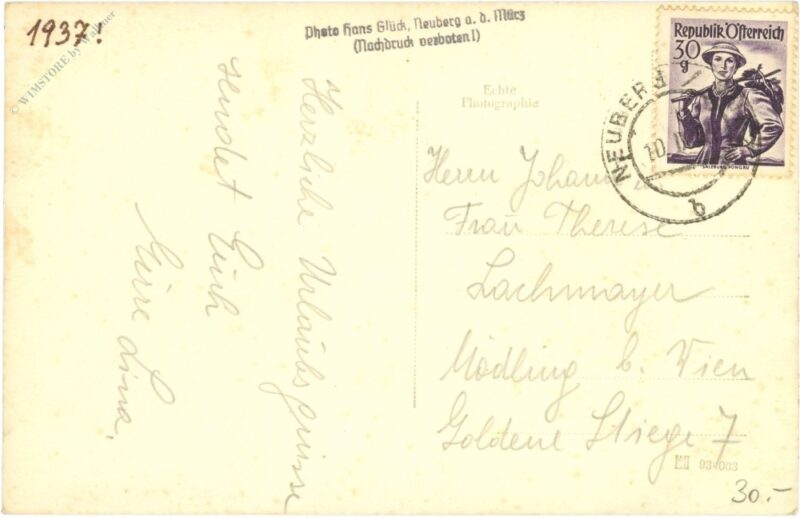 1937!
© WIMSTORE by Wallner
Photo Hans Glück, Neuberg a. d. Mürz
(Nachdruck verboten!)
Republik Österreich
30
g
SALZBURG, PONGAU
NEUBERG
10.
b
Echte
Photographie
Herzliche Urlaubsgrüsse
sendet Euch
Eure Lina.
Herrn Johann u.
Frau Therese
Lachmayer
Mödling b. Wien
Goldene Stiege 7
934083
30.-